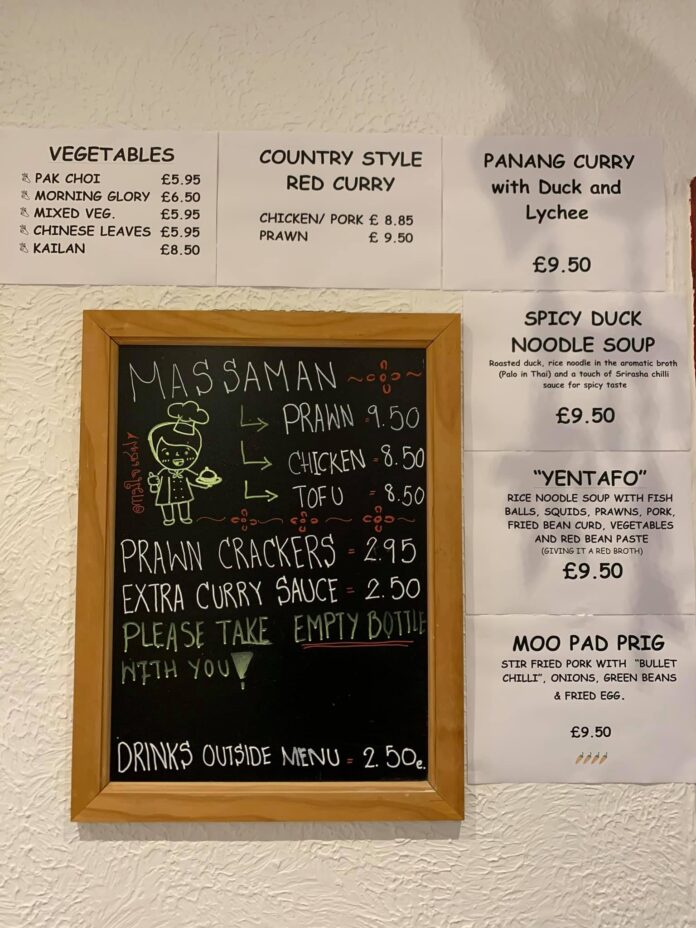 VEGETABLES
PAK CHOI £5.95
MORNING GLORY £6.50
MIXED VEG. £5.95
CHINESE LEAVES £5.95
KAILAN £8.50
COUNTRY STYLE
RED CURRY
CHICKEN/ PORK £ 8.85
PRAWN £ 9.50
PANANG CURRY
with Duck and
Lychee
£9.50
SPICY DUCK
NOODLE SOUP
Roasted duck, rice noodle in the aromatic broth
(Palo in Thai) and a touch of Srirasha chilli
sauce for spicy taste
£9.50
"YENTAFO"
RICE NOODLE SOUP WITH FISH
BALLS, SQUIDS, PRAWNS, PORK,
FRIED BEAN CURD, VEGETABLES
AND RED BEAN PASTE
(GIVING IT A RED BROTH)
£9.50
MOO PAD PRIG
STIR FRIED PORK WITH "BULLET
CHILLI", ONIONS, GREEN BEANS
& FRIED EGG.
£9.50
MASSAMAN
PRAWN = 9.50
CHICKEN = 8.50
TOFU = 8.50
PRAWN CRACKERS = 2.95
EXTRA CURRY SAUCE = 2.50
PLEASE TAKE EMPTY BOTTLE
WITH YOU!
DRINKS OUTSIDE MENU = 2.50e.